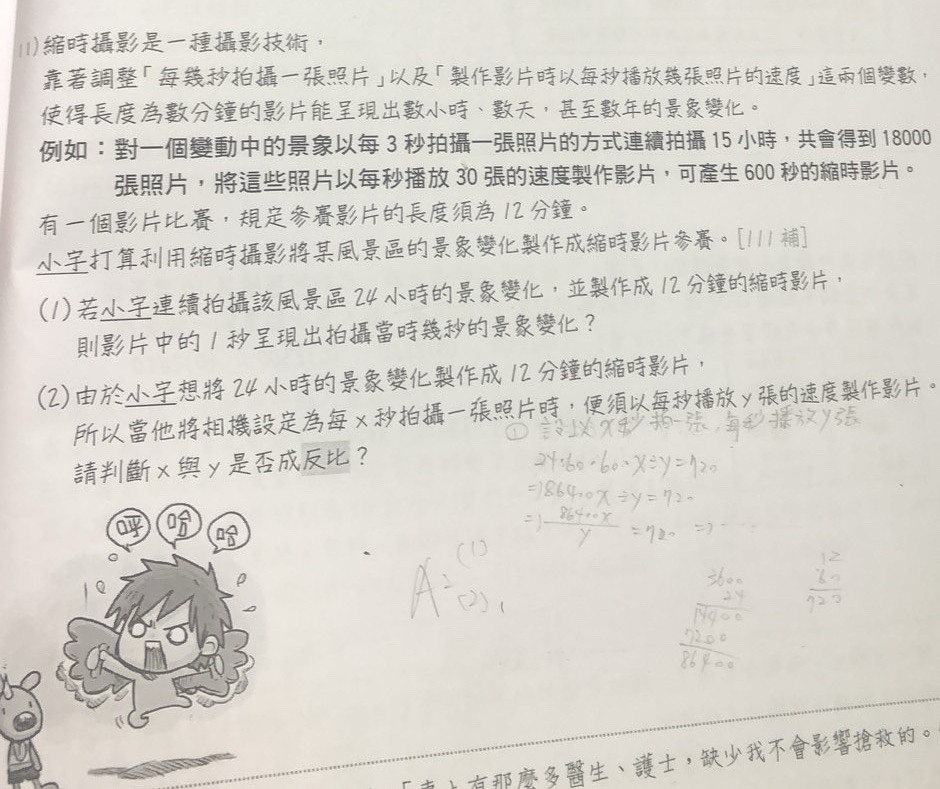 11)縮時攝影是一種攝影技術，
靠著調整「每幾秒拍攝一張照片」以及「製作影片時以每秒播放幾張照片的速度」這兩個變數，
使得長度為數分鐘的影片能呈現出數小時、數天，甚至數年的景象變化。
例如：對一個變動中的景象以每 3 秒拍攝一張照片的方式連續拍攝 15 小時，共會得到 18000
張照片，將這些照片以每秒播放 30 張的速度製作影片，可產生 600 秒的縮時影片。
有一個影片比賽，規定參賽影片的長度須為 12 分鐘。
小字打算利用縮時攝影將某風景區的景象變化製作成縮時影片參賽。[111 補]
(1)若小字連續拍攝該風景區 24 小時的景象變化，並製作成 12 分鐘的縮時影片，
則影片中的 1 秒呈現出拍攝當時幾秒的景象變化？
(2)由於小字想將 24 小時的景象變化製作成 12 分鐘的縮時影片，
所以當他將相機設定為每 x 秒拍攝一張照片時，便須以每秒播放 y 張的速度製作影片。
請判斷 x 與 y 是否成反比？
① 設以 x 秒拍一張，每秒播放 y 張
24·60·60·x÷y=720
=)86400x÷y=720
=) 86400x
y
=720 =)
呼 哈 哈
A: (1)
(2)
3600
24
14400
7200
86400
12
60
720
那麼多醫生、護士，缺少我不會影響搶救的。